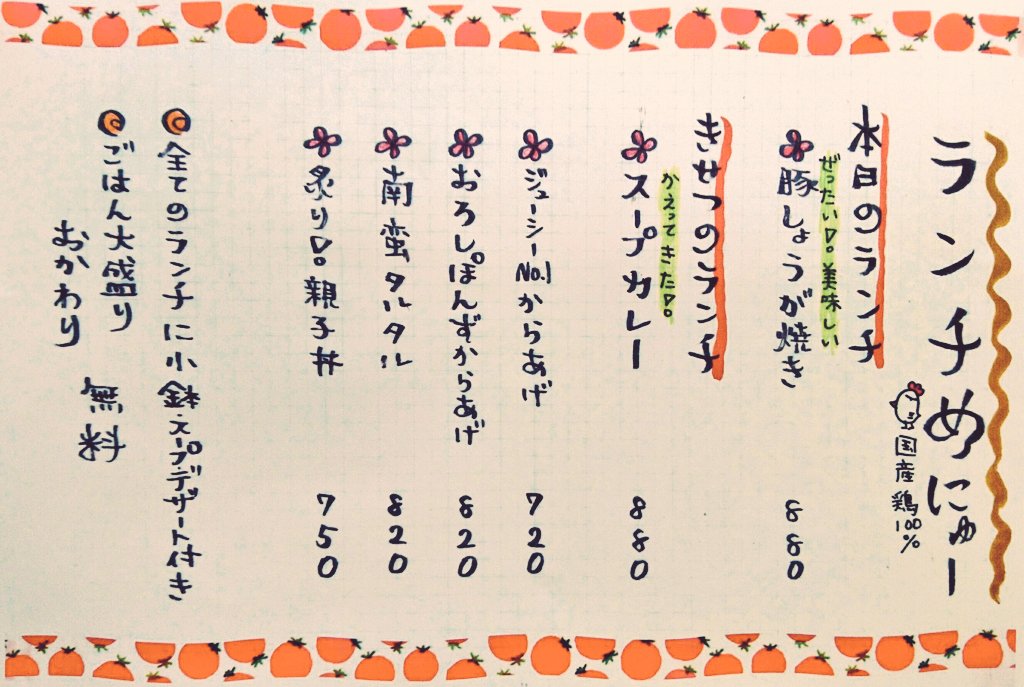 ランチめにゅー
国産鶏100%
本日のランチ
ぜったい!。美味しい
豚しょうが焼き 880
きせつのランチ
かえってきた!。
スープカレー 880
ジューシーNo.1からあげ 720
おろしぽんずからあげ 820
南蛮タルタル 820
炙り!。親子丼 750
全てのランチに小鉢・スープ・デザート付き
ごはん大盛り
おかわり 無料